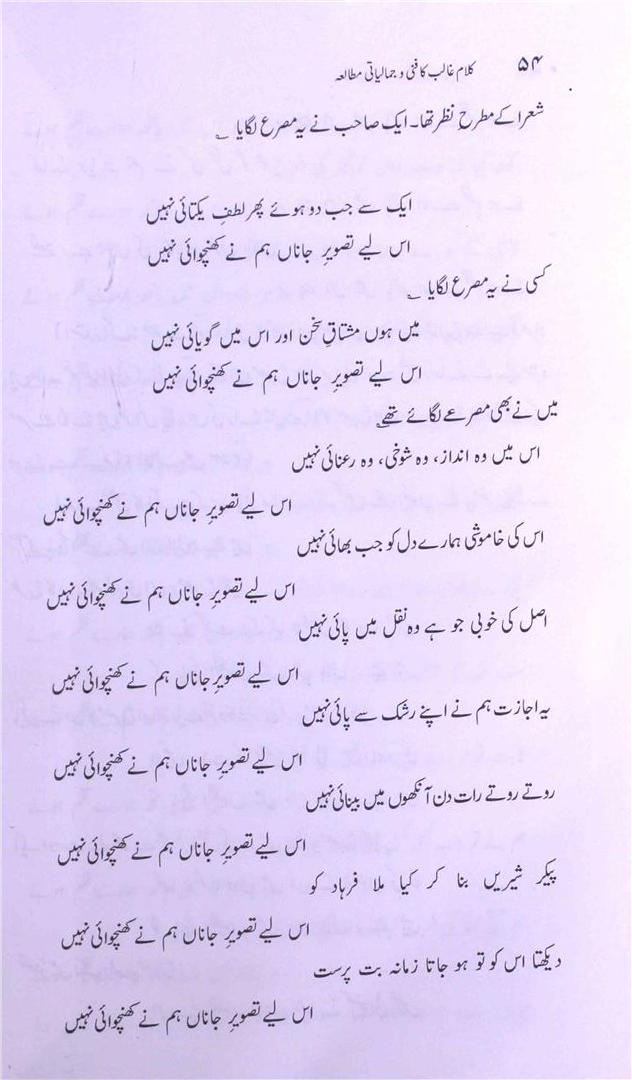 ۵۴ کلام غالب کا فنی و جمالیاتی مطالعہ
شعرا کے مطرحِ نظر تھا۔ ایک صاحب نے یہ مصرع لگایا ؎
ایک سے جب دو ہوئے پھر لطفِ یکتائی نہیں
اس لیے تصویرِ جاناں ہم نے کھنچوائی نہیں
کسی نے یہ مصرع لگایا ؎
میں ہوں مشتاقِ سخن اور اس میں گویائی نہیں
اس لیے تصویرِ جاناں ہم نے کھنچوائی نہیں
میں نے بھی مصرعے لگائے تھے ؎
اس میں وہ انداز، وہ شوخی، وہ رعنائی نہیں
اس لیے تصویرِ جاناں ہم نے کھنچوائی نہیں
اس کی خاموشی ہمارے دل کو جب بھائی نہیں
اس لیے تصویرِ جاناں ہم نے کھنچوائی نہیں
اصل کی خوبی جو ہے وہ نقل میں پائی نہیں
اس لیے تصویرِ جاناں ہم نے کھنچوائی نہیں
یہ اجازت ہم نے اپنے رشک سے پائی نہیں
اس لیے تصویرِ جاناں ہم نے کھنچوائی نہیں
روتے روتے رات دن آنکھوں میں بینائی نہیں
اس لیے تصویرِ جاناں ہم نے کھنچوائی نہیں
پیکرِ شیریں بنا کر کیا ملا فرہاد کو
اس لیے تصویرِ جاناں ہم نے کھنچوائی نہیں
دیکھتا اس کو تو ہو جاتا زمانہ بت پرست
اس لیے تصویرِ جاناں ہم نے کھنچوائی نہیں